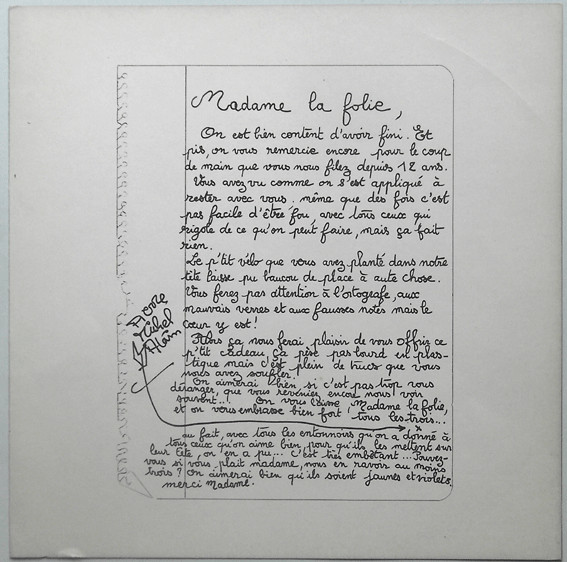 Madame la folie,
On est bien content d'avoir fini. Et
pis, on vous remercie encore pour le coup
de main que vous nous filez depuis 12 ans.
Vous avez vu comme on s'est appliqué à
rester avec vous. même que des fois c'est
pas facile d'être fou avec tous ceux qui
rigole de ce qu'on peut faire, mais ça fait
rien.
Le p'tit vélo que vous avez planté dans notre
tite laisse pu baucou de place à aute chose.
Vous ferez pas attention à l'ortografe, aux
mauvais verres et aux fausses notes mais le
cœur y est!
Alors ça nous ferai plaisir de vous offrir ce
p'tit cadeau. ça pèse pas lourd in plas-
tique mais c'est plein de trucs que vous
nous avez souffler!
On aimerai bien si c'est pas trop vous
déranger, que vous reveniez encore nous voir
souvent..! On vous laime Madame la folie,
et on vous embrasse bien fort tous les trois...
Michel
Alain
au fait, avec tous les entonnoirs qu'on a donné à
tous ceux qu'on aime bien pour qu'ils les mettent sur
leur tête, on en a pu... c'est très embêtant... Pouvez-
vous si vous plait madame, nous en ravoir au moins
trois? On aimerai bien qu'ils soient jaunes et violets.
merci Madame.